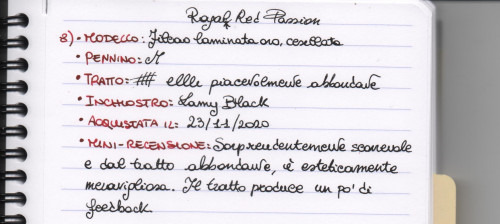 Royal Red Passion
8) • MODELLO: Jinhao laminata oro, cesellata
• PENNINO: M
• TRATTO: ## elle piacevolmente abbondante
• INCHIOSTRO: Lamy Black
• ACQUISTATA IL: 23/11/2020
• MINI-RECENSIONE: Sorprendentemente scorrevole
e dal tratto abbondante, è esteticamente
meravigliosa. Il tratto produce un po' di
feedback.